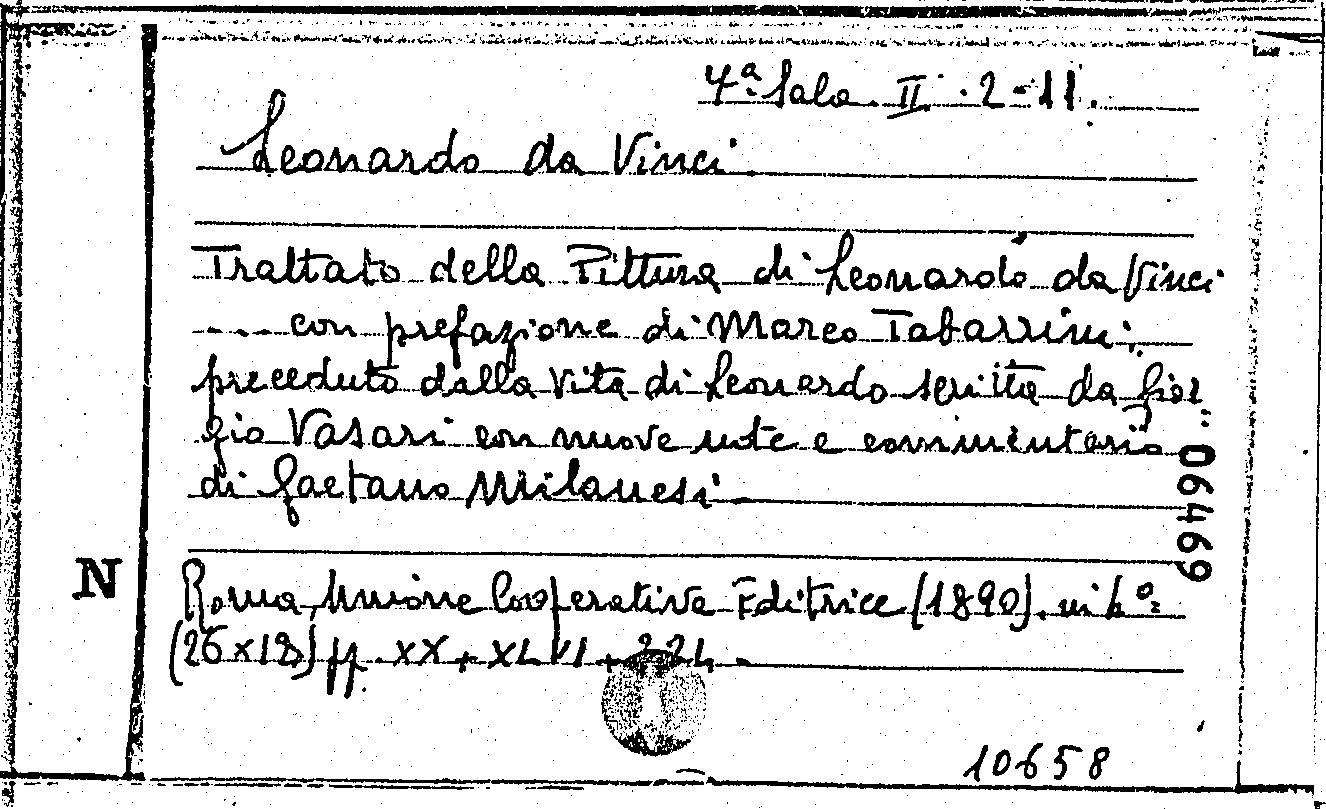 4ª Sala. II. 2-11.
Leonardo da Vinci.
Trattato della Pittura di Leonardo da Vinci
.... con prefazione di Marco Tabarrini;
preceduto dalla vita di Leonardo scritta da Gior
gio Vasari con nuove note e commentario
di Gaetano Milanesi.
06469
N
Roma, Unione Cooperativa Editrice (1890). in 4º:
(26x18) pp. XX + XLVI +
10658